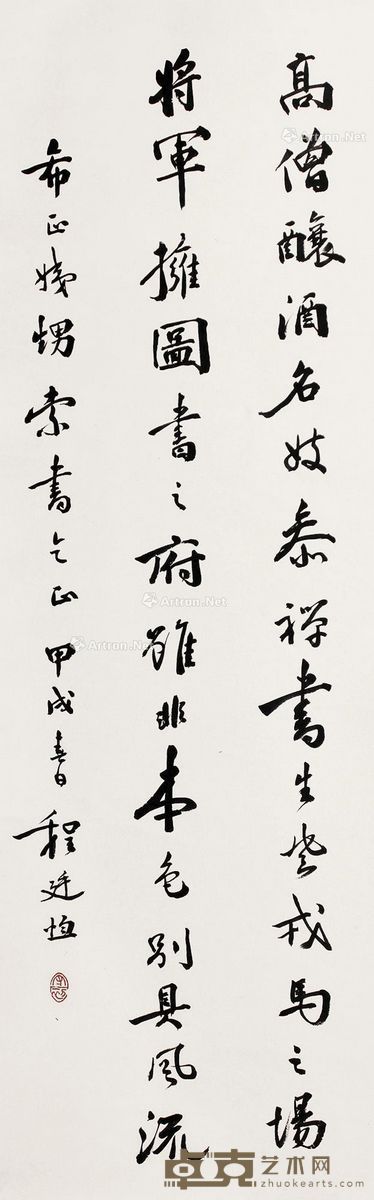 高僧釀酒名妓叅禪書生登戎馬之場
將軍擁圖書之府雖非本色別具風流
希正姨甥索書乞正 甲戌春日 程廷恆
Artron.Net
卓克艺术网
www.zhuokearts.com